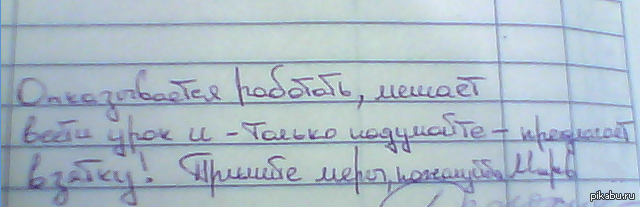 Отказывается работать, мешает
вести урок и - только подумайте - предлагает
взятку! Примите меры, пожалуйста
pikabu.ru